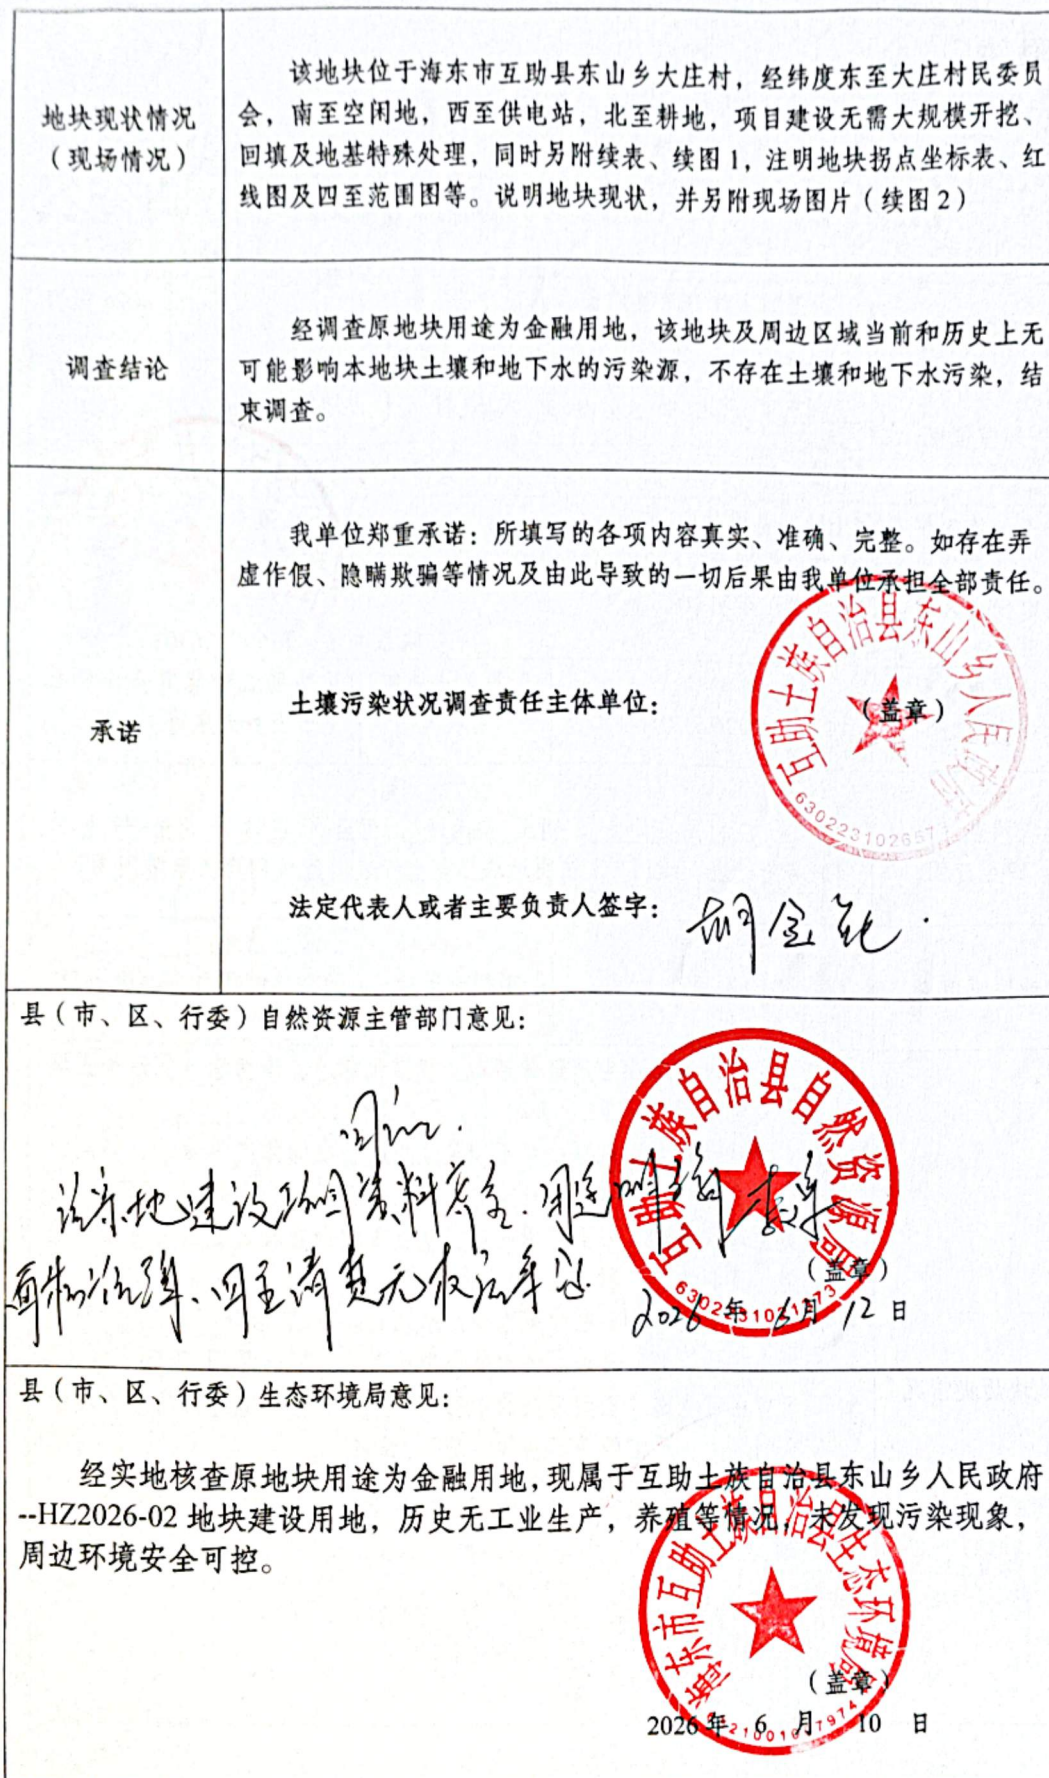 地块现状情况
（现场情况）
该地块位于海东市互助县东山乡大庄村，经纬度东至大庄村民委员
会，南至空闲地，西至供电站，北至耕地，项目建设无需大规模开挖、
回填及地基特殊处理，同时另附续表、续图1，注明地块拐点坐标表、红
线图及四至范围图等。说明地块现状，并另附现场图片（续图2）
调查结论
经调查原地块用途为金融用地，该地块及周边区域当前和历史上无
可能影响本地块土壤和地下水的污染源，不存在土壤和地下水污染，结
束调查。
承诺
我单位郑重承诺：所填写的各项内容真实、准确、完整。如存在弄
虚作假、隐瞒欺骗等情况及由此导致的一切后果由我单位承担全部责任。
土壤污染状况调查责任主体单位：
（盖章）
互助土族自治县东山乡人民政府
6302231026
法定代表人或者主要负责人签字：
胡金
县（市、区、行委）自然资源主管部门意见：
该宗地建设项目资料齐全.用途明确
面积准确、四至清楚无权属争议
互助土族自治县自然资源局
（盖章）
2026年 6月 12日
县（市、区、行委）生态环境局意见：
经实地核查原地块用途为金融用地，现属于互助土族自治县东山乡人民政府
--HZ2026-02 地块建设用地，历史无工业生产，养殖等情况，未发现污染现象，
周边环境安全可控。
海东市互助土族自治县生态环境局
（盖章）
2026年 6 月 10 日